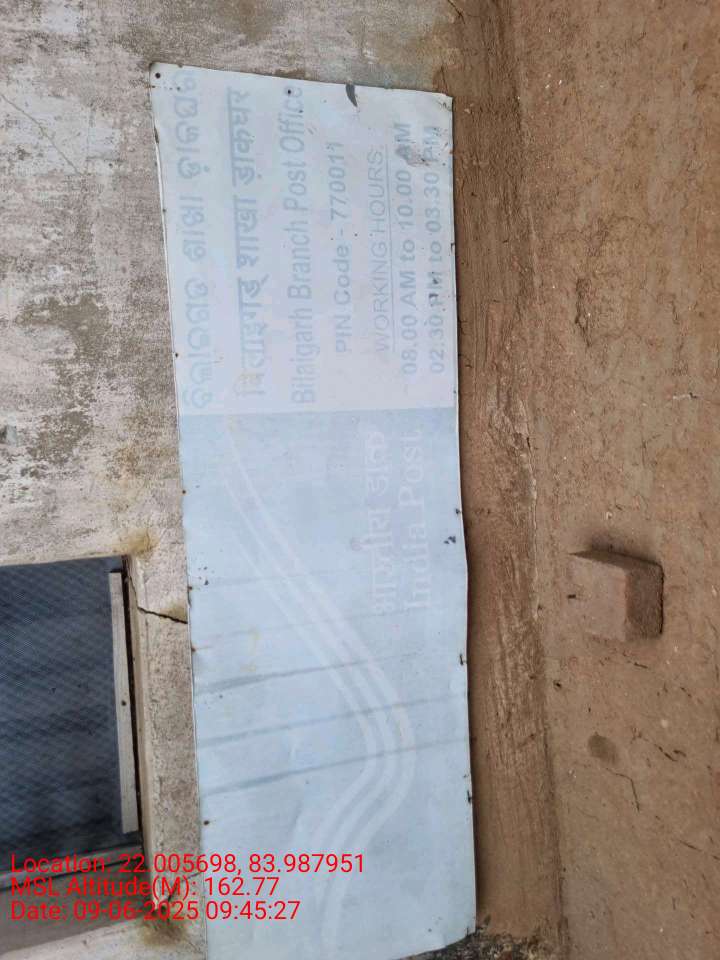 ବିଲାଇଗଡ ଶାଖା ଡ଼ାକଘର
बिलाइगड़ शाखा ड़ाकघर
Bilaigarh Branch Post Office
PIN Code - 770011
WORKING HOURS
08.00 AM to 10.00 AM
02.30 PM to 03.30 PM
भारतीय डाक
India Post
Location: 22.005698, 83.987951
MSL Altitude(M): 162.77
Date: 09-06-2025 09:45:27